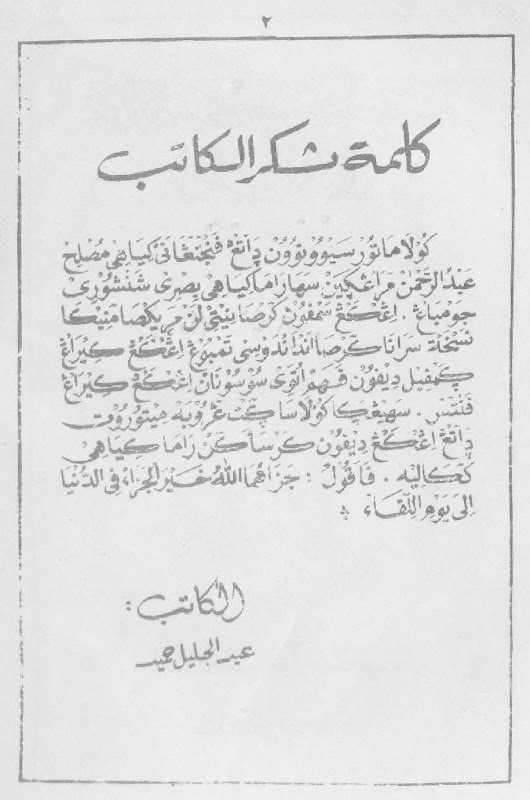 ٢
كلمة شكر الكاتب
كَوْلَا هَاتُوْر سَيٓوُوْ نُوْوُوْن دَاتَڠْ فَنْجَنَڠَانَيْ كِيَاهِيْ مُصْلِحْ
عَبْدُ الرَّحْمٰنْ مَرَاڠْكٓيْن سَهَا رَامَا كِيَاهِيْ بِصْرِيْ شَنْشُوْرِيْ
جَوْمْبَاڠْ. اِڠْكَڠْ سَمْفُوْن كَرْصَا نِيْتِيْ لَنْ مَرِيْكْصَا مَنِيْكَا
نُسْخَةْ سَرَانَا كَرْصَا اَنْدَانْدَوْسِيْ تٓمْبُوْڠْ اِڠْكَڠْ كِيْرَاڠْ
كَمْفِيْل دِيْفُوْن فَهَمْ اُتَوِيْ سُوْسُوْنَانْ اِڠْكَڠْ كِيْرَاڠْ
فَنْتٓسْ. سَهِيْڠْكَا كَوْلَا سَاكٓتْ عَرُوْبَهْ مِيْتُوْرُوْتْ
دَاتَڠْ اِڠْكَڠْ دِيْفُوْن كَرْسَاكَٓنْ رَامَا كِيَاهِيْ
كَكَالِيْهْ. فَاَقُوْلُ: جَزَاهُمَا اللّٰهُ خَيْرَ الْجَزَاءِ فِى الدُّنْيَا
اِلَى يَوْمِ اللِّقَاءِ
الكاتب :
عبد الجليل حميد